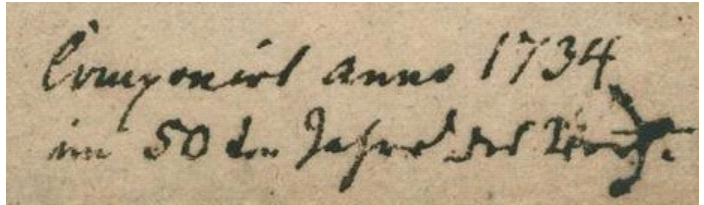 Componirt anno 1734
im 50 ten Jahre des Verf.